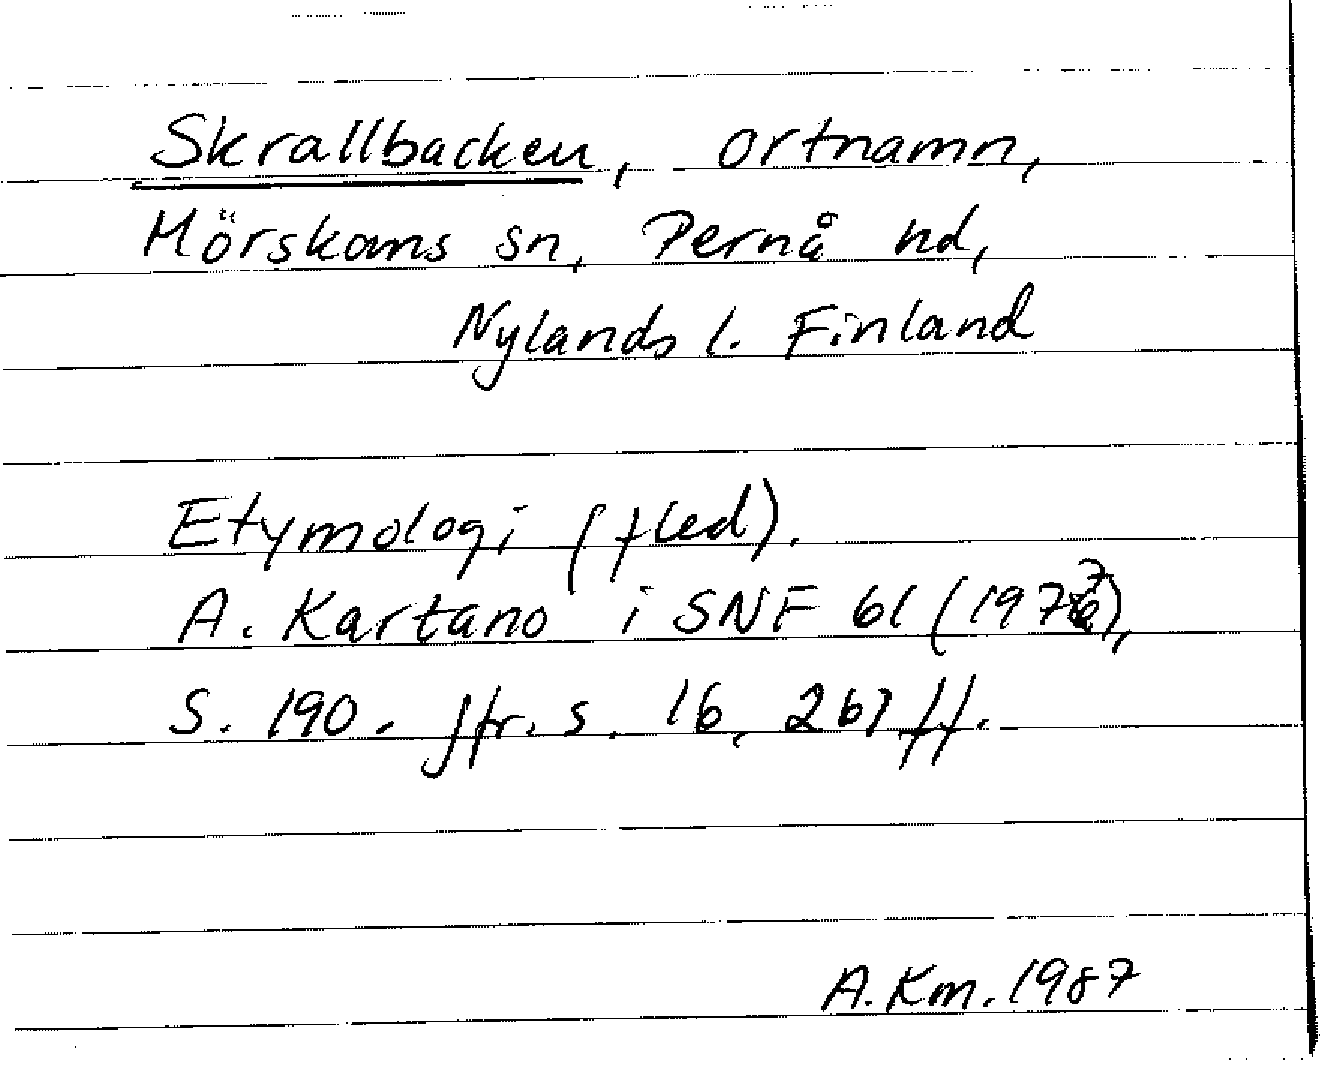 Skrallbacken, ortnamn,
Mörskoms sn, Pernå hd,
Nylands l. Finland
Etymologi (fled).
A. Kartano i SNF 61 (1976),
S. 190. Jfr. s. 16, 267 ff.
A. Km. 1987